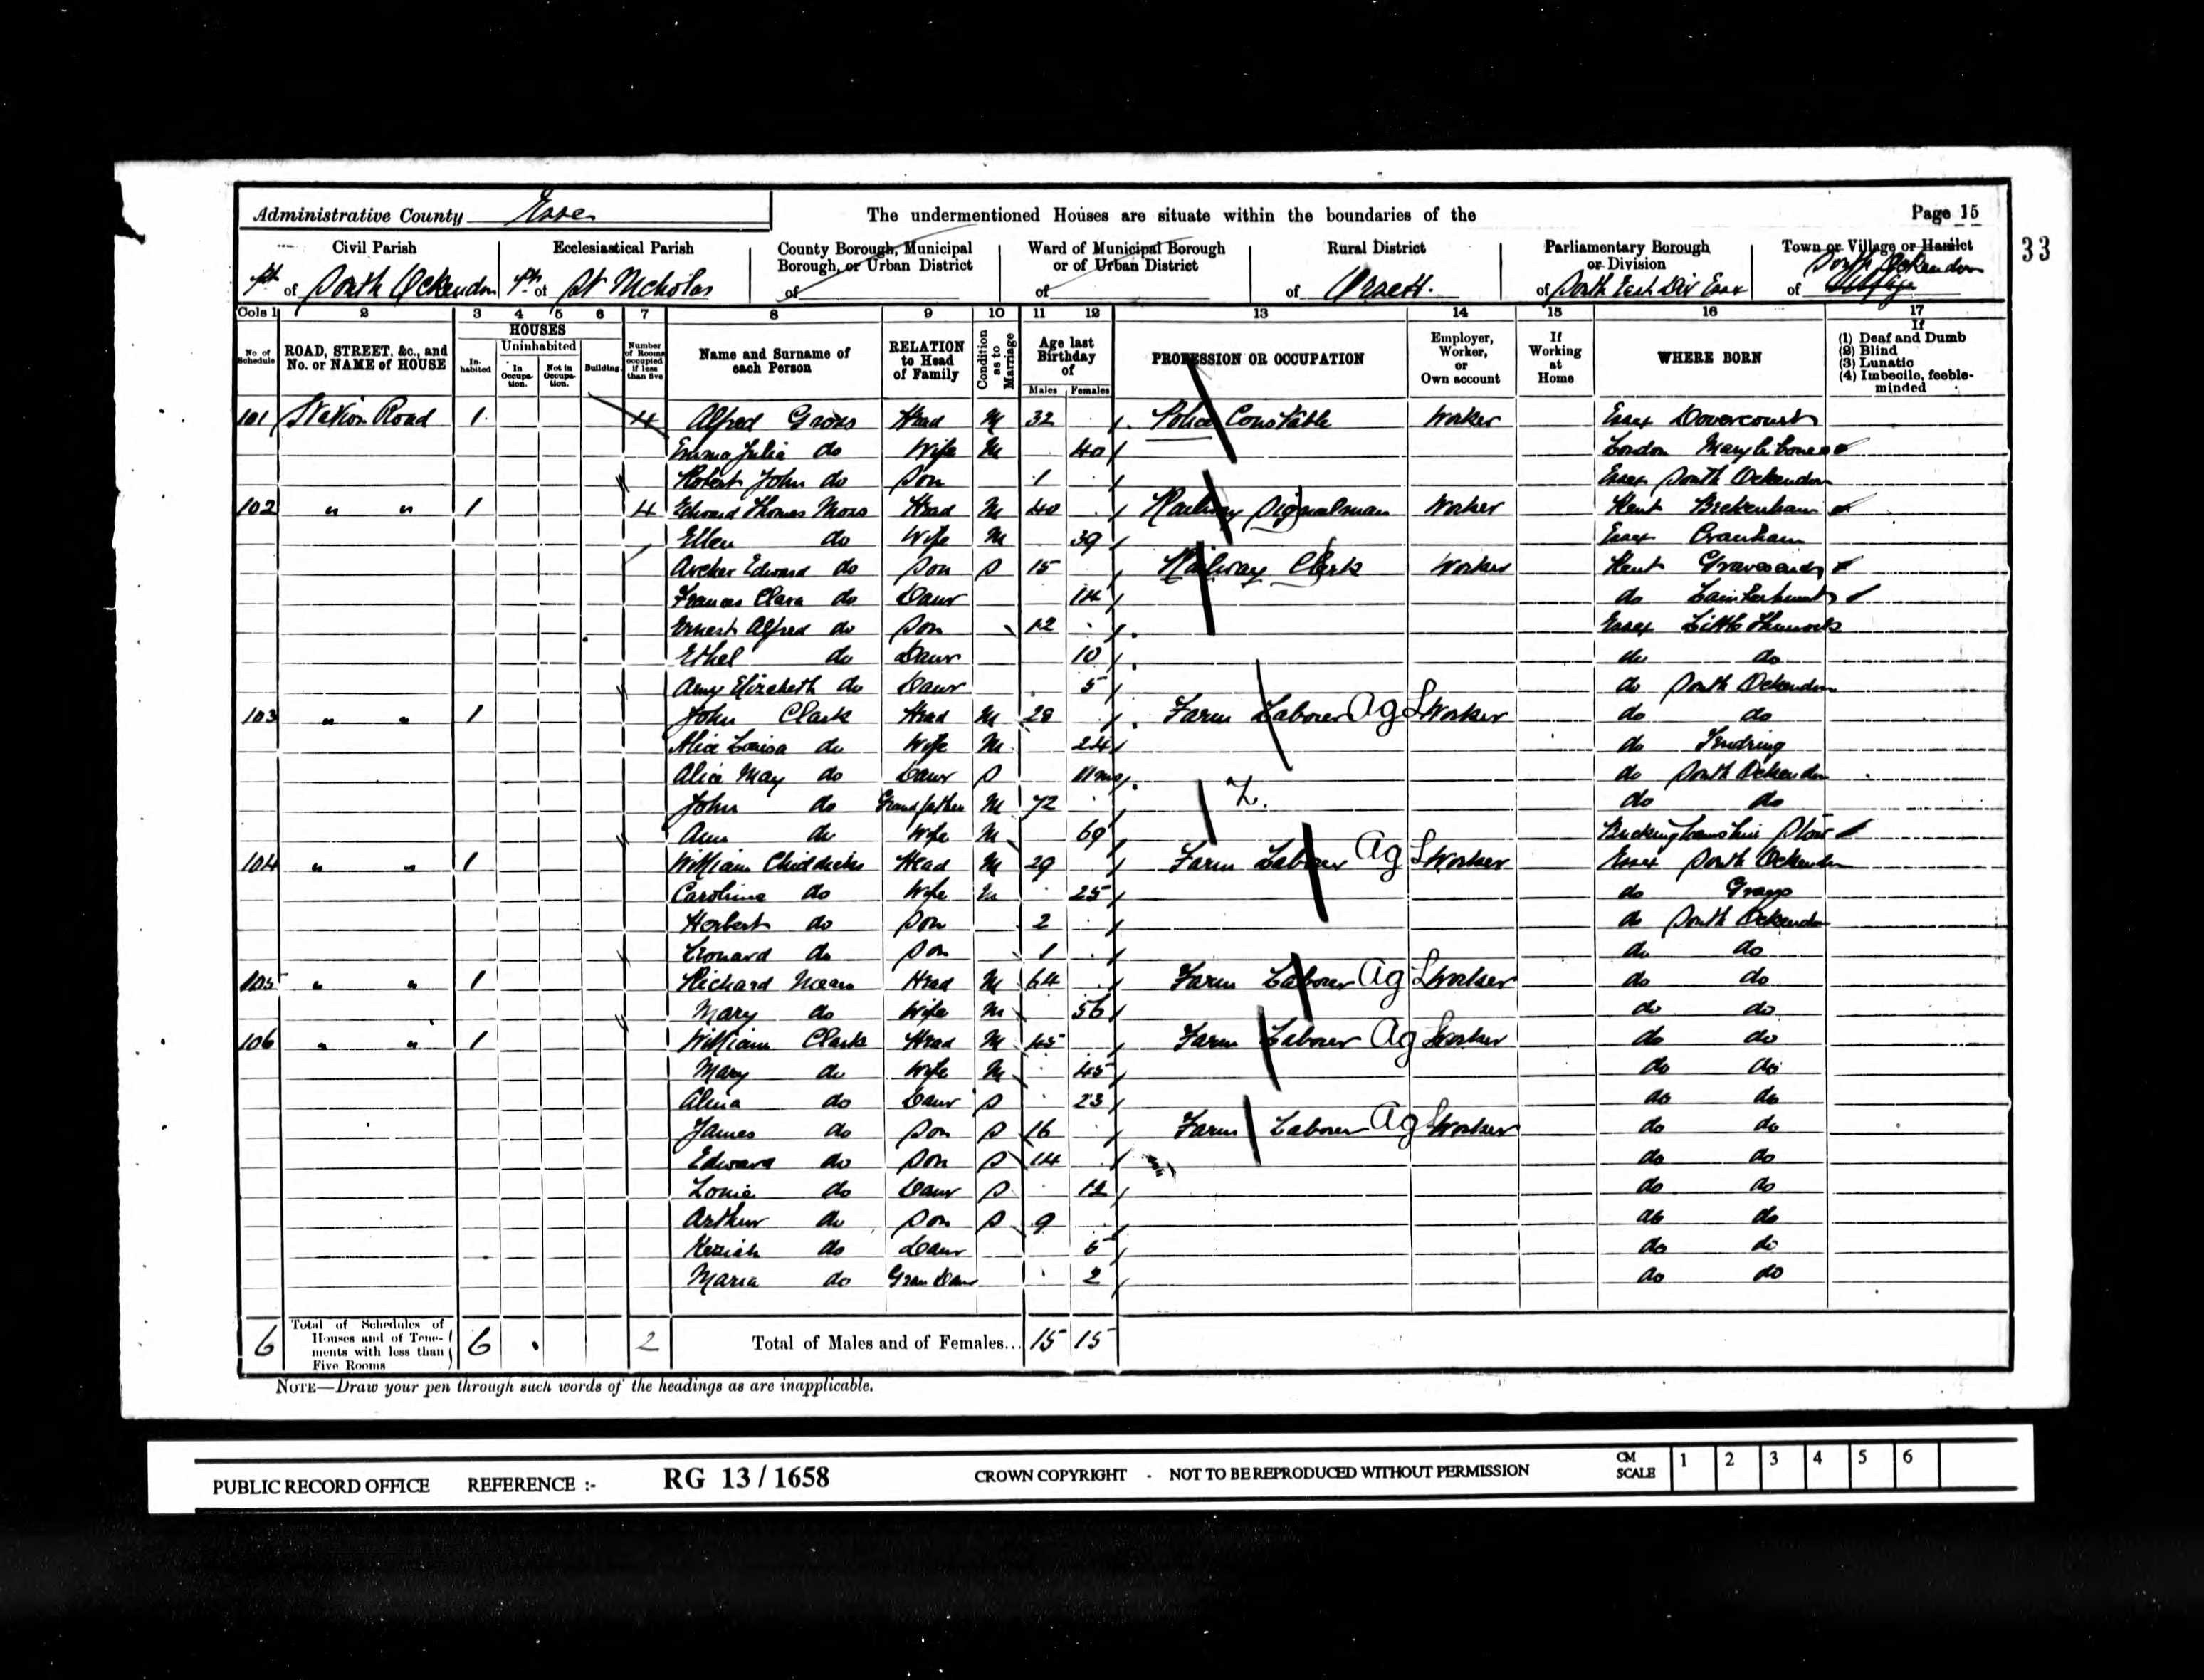 Administrative County Essex The undermentioned Houses are situate within the boundaries of the Page 15
33
Civil Parish Ecclesiastical Parish County Borough, Municipal Borough, or Urban District Ward of Municipal Borough or of Urban District Rural District Parliamentary Borough or Division Town or Village or Hamlet
pt of South Ockendon pt of St Nicholas of of of Orsett. of South East Div Essex of South Ockendon Village
Cols 1 2 3 4 5 6 7 8 9 10 11 12 13 14 15 16 17
No. of Schedule ROAD, STREET, &c., and No. or NAME of HOUSE HOUSES Inhabited Uninhabited In Occupation. Not in Occupation. Building. Number of Rooms occupied if less than five Name and Surname of each Person RELATION to Head of Family Condition as to Marriage Age last Birthday of Males Females PROFESSION OR OCCUPATION Employer, Worker, or Own account If Working at Home WHERE BORN If (1) Deaf and Dumb (2) Blind (3) Lunatic (4) Imbecile, feeble-minded
101 Station Road 1 4 Alfred Gross Head M 32 Police Constable Worker Essex Dovercourt
Emma Julia do Wife M 40 London Marylebone
Robert John do Son 1 Essex South Ockendon
102 " " 1 4 Edward Thomas Moss Head M 40 Railway Signalman Worker Kent Beckenham
Ellen do Wife M 39 Essex Cranham
Archer Edward do Son S 15 Railway Clerk Worker Kent Gravesend
Frances Clara do Daur 14 do
Ernest Alfred do Son 12 Essex Little Thurrock
Ethel do Daur 10 do do
Amy Elizabeth do Daur 5 do South Ockendon
103 " " 1 John Clark Head M 28 Farm Laborer Ag L Worker do do
Alice Louisa do Wife M 24 do Tendring
Alice May do Daur S 11 mo do South Ockendon
John do Grandfather M 72 do do
Ann do Wife M 69 Buckinghamshire
104 " " 1 William Chiddicks Head M 29 Farm Laborer Ag L Worker Essex South Ockendon
Caroline do Wife M 25 do Grays
Herbert do Son 2 do South Ockendon
Leonard do Son 1 do do
105 " " 1 Richard Mears Head M 64 Farm Laborer Ag L Worker do do
Mary do Wife M 56 do do
106 " " 1 William Clark Head M 45 Farm Laborer Ag L Worker do do
Mary do Wife M 45 do do
Alma do Daur S 23 do do
James do Son S 16 Farm Laborer Ag L Worker do do
Edward do Son S 14 do do
Louie do Daur S 12 do do
Arthur do Son S 9 do do
Keziah do Daur 5 do do
Maria do Gran Daur 2 do do
6 Total of Schedules of Houses and of Tenements with less than Five Rooms 6 2 Total of Males and of Females... 15 15
NOTE—Draw your pen through such words of the headings as are inapplicable.
PUBLIC RECORD OFFICE REFERENCE :- RG 13 / 1658 CROWN COPYRIGHT - NOT TO BE REPRODUCED WITHOUT PERMISSION CM SCALE 1 2 3 4 5 6